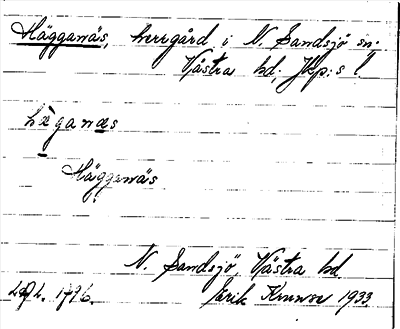 Hägganäs, herrgård i N. Sandsjö sn.
Västra hd, Jkp:s l
hæ̀ganæs
Hägganäs
N. Sandsjö, Västra hd
1796. Erik Kruuse 1933